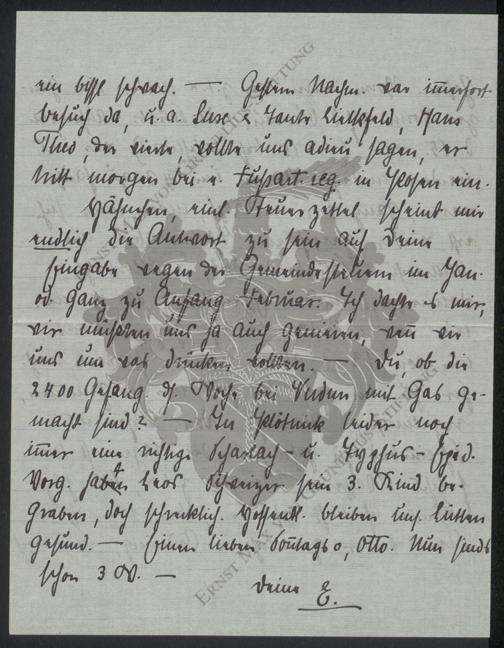 ein bissl schwach. — Gestern Nachm. war immerfort
Besuch da, u. a. Luse & Tante Lielkfeld, Hans
Theo, der vierte, wollte uns adieu sagen, er
tritt morgen bei e. Fußart. reg. in Posen ein.
Hähnchen, einl. Steuerzettel scheint mir
endlich die Antwort zu sein auf Deine
Eingabe wegen der Gemeindesteuern im Jan.
od. ganz zu Anfang Februar. Ich dachte es mir,
wir müßten uns ja auch genieren, wenn wir
uns um was drücken wollten. — Du, ob die
2400 Gefang. d. Woche bei Verdun mit Gas ge-
macht sind? — In Plötnick leider noch
immer eine richtige Scharlach- u. Typhus-Epid.
Vorg. haben Leos Schweizer sein 3. Kind be-
graben, doch schrecklich. Hoffentl. bleiben uns. Leutten
gesund. — Einen lieben Sonntags o, Otto. Nun sinds
schon 3 W. —
Deine E.
ERNST MAX VON GRUNELIUS-STIFTUNG